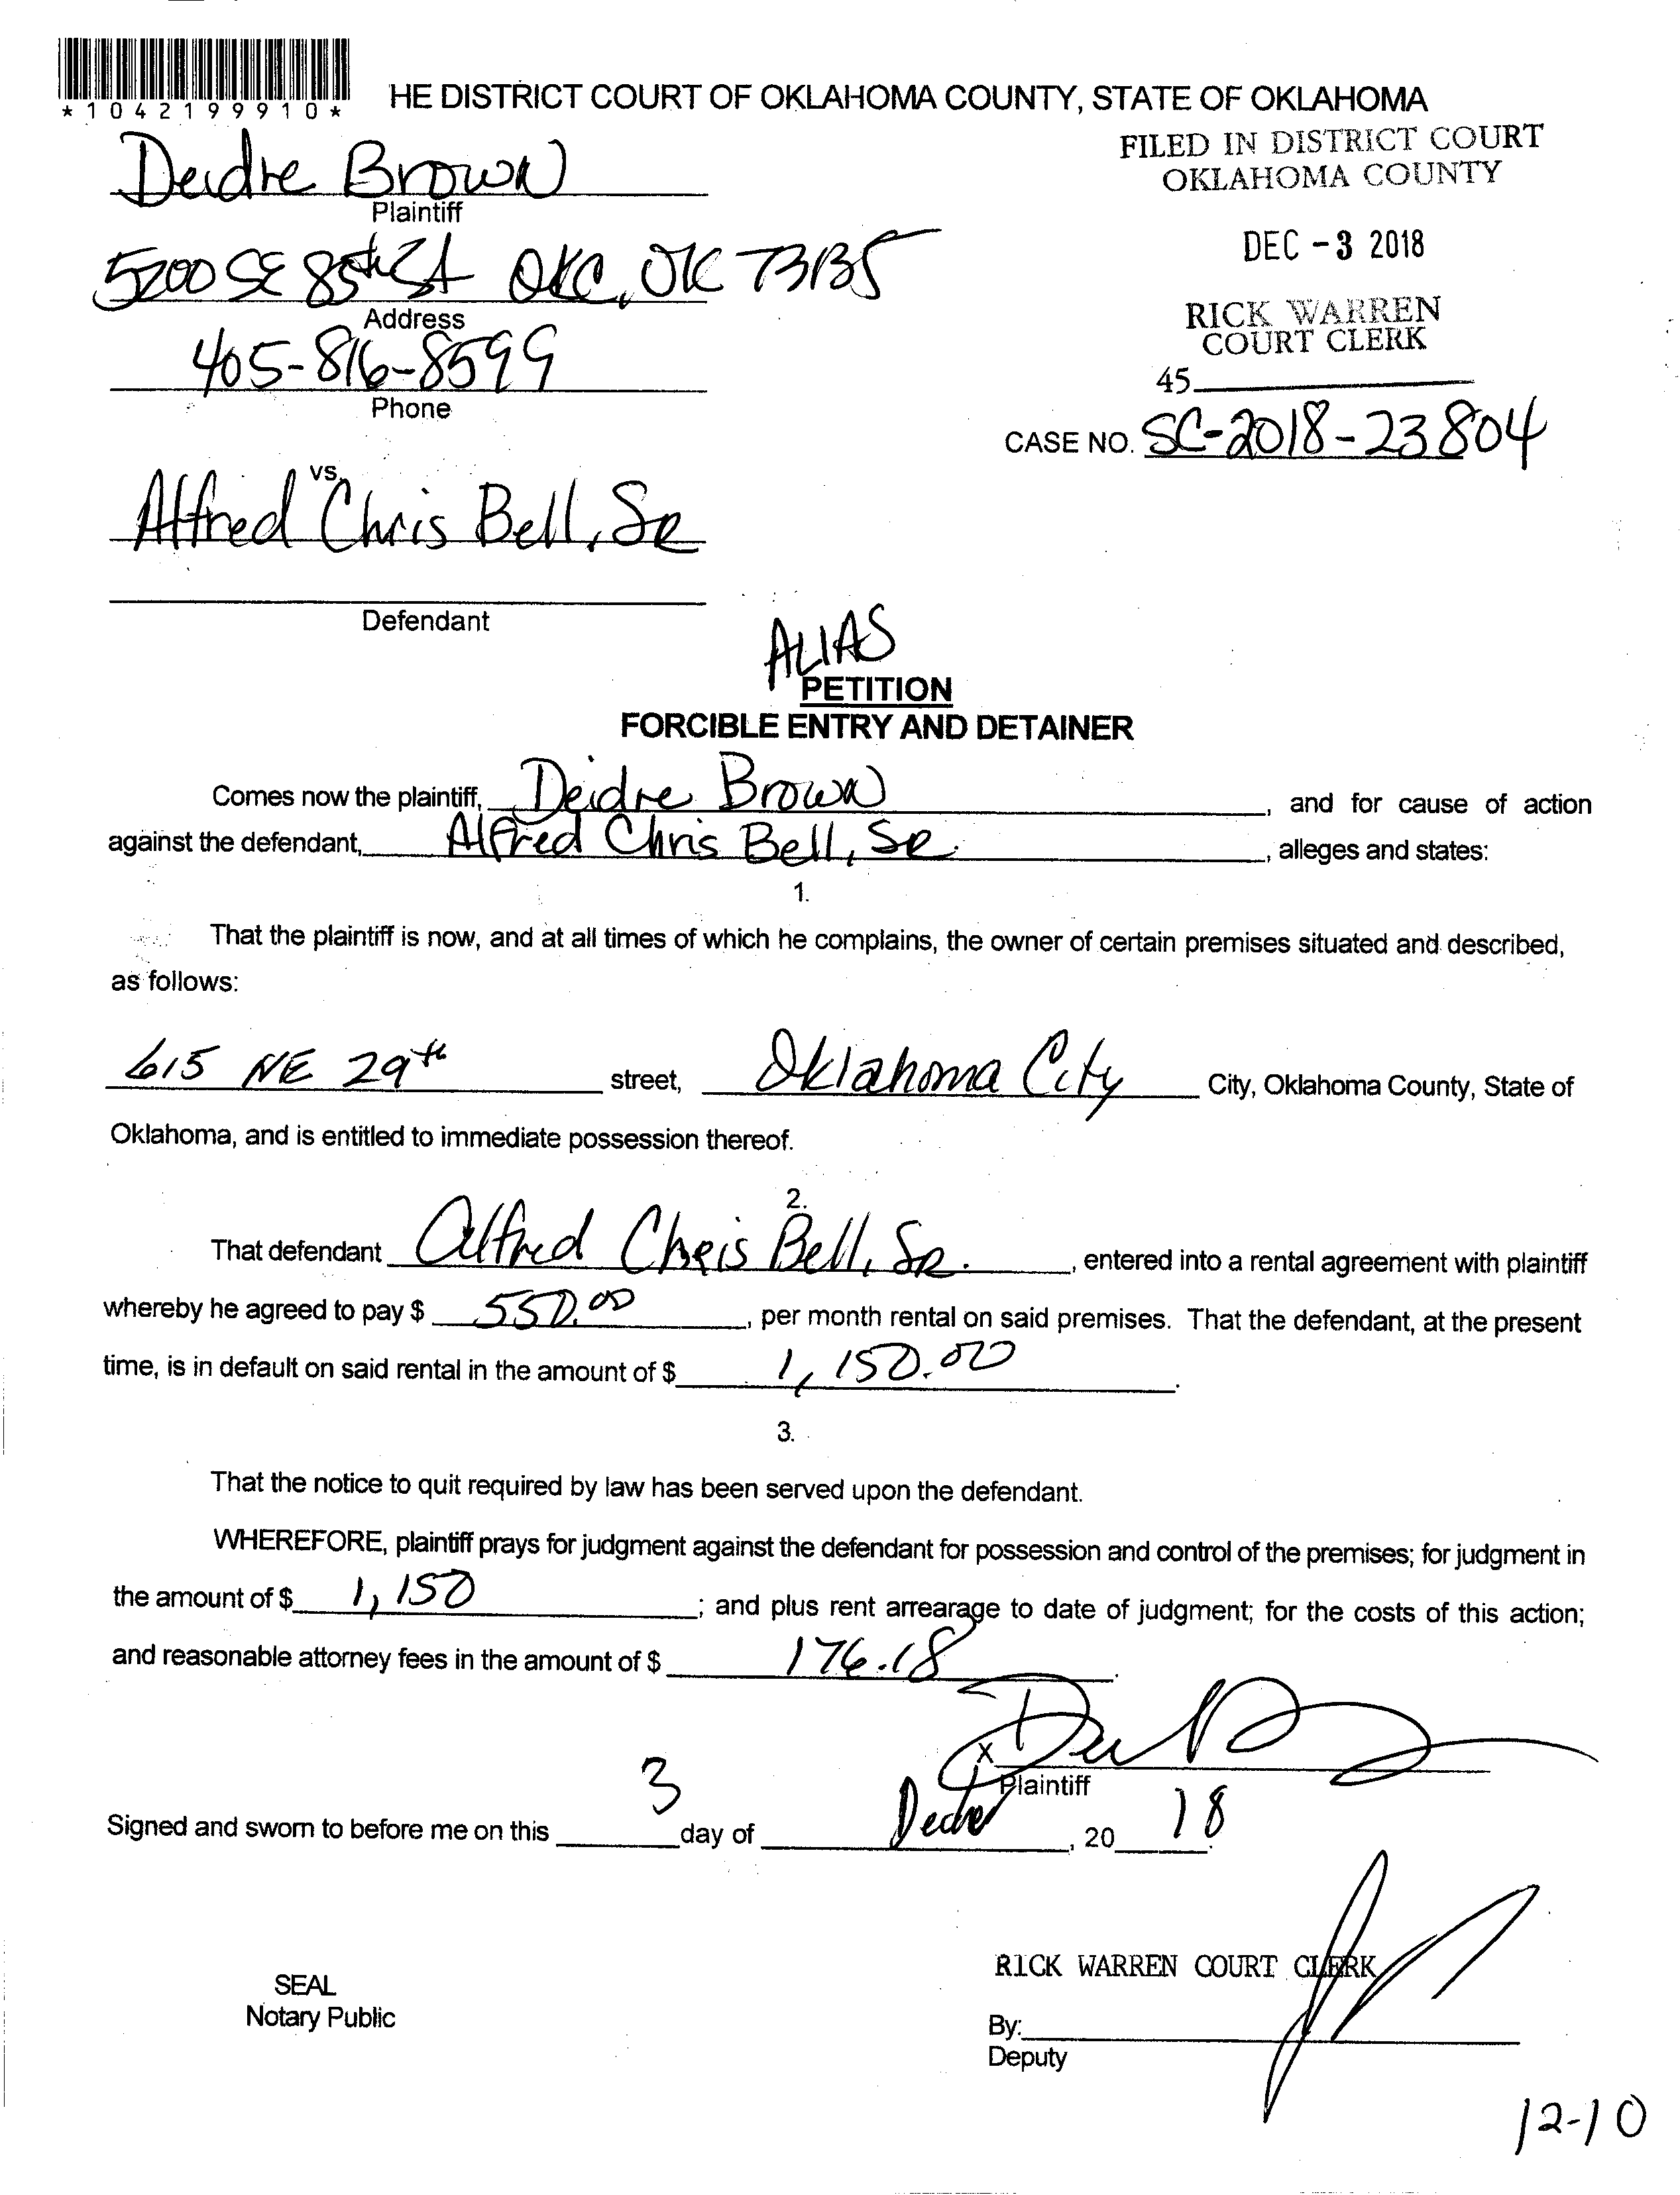 *1042199910*
HE DISTRICT COURT OF OKLAHOMA COUNTY, STATE OF OKLAHOMA
FILED IN DISTRICT COURT
OKLAHOMA COUNTY
Deidre Brown
Plaintiff
DEC -3 2018
5200 SE 85th St OKC, OK 73135
Address
RICK WARREN
COURT CLERK
405-816-8599
Phone
45
CASE NO. SC-2018-23804
vs.
Alfred Chris Bell, Sr
Defendant
ALIAS
PETITION
FORCIBLE ENTRY AND DETAINER
Comes now the plaintiff, Deidre Brown, and for cause of action
against the defendant, Alfred Chris Bell, Sr., alleges and states:
1.
That the plaintiff is now, and at all times of which he complains, the owner of certain premises situated and described,
as follows:
615 NE 29th street, Oklahoma City City, Oklahoma County, State of
Oklahoma, and is entitled to immediate possession thereof.
2.
That defendant Alfred Chris Bell, Sr., entered into a rental agreement with plaintiff
whereby he agreed to pay $ 550.00, per month rental on said premises. That the defendant, at the present
time, is in default on said rental in the amount of $ 1,150.00.
3.
That the notice to quit required by law has been served upon the defendant.
WHEREFORE, plaintiff prays for judgment against the defendant for possession and control of the premises; for judgment in
the amount of $ 1,150; and plus rent arrearage to date of judgment; for the costs of this action;
and reasonable attorney fees in the amount of $ 176.18.
X
Plaintiff
Signed and sworn to before me on this 3 day of , 20 18.
RICK WARREN COURT CLERK
SEAL
Notary Public
By:
Deputy
12-10